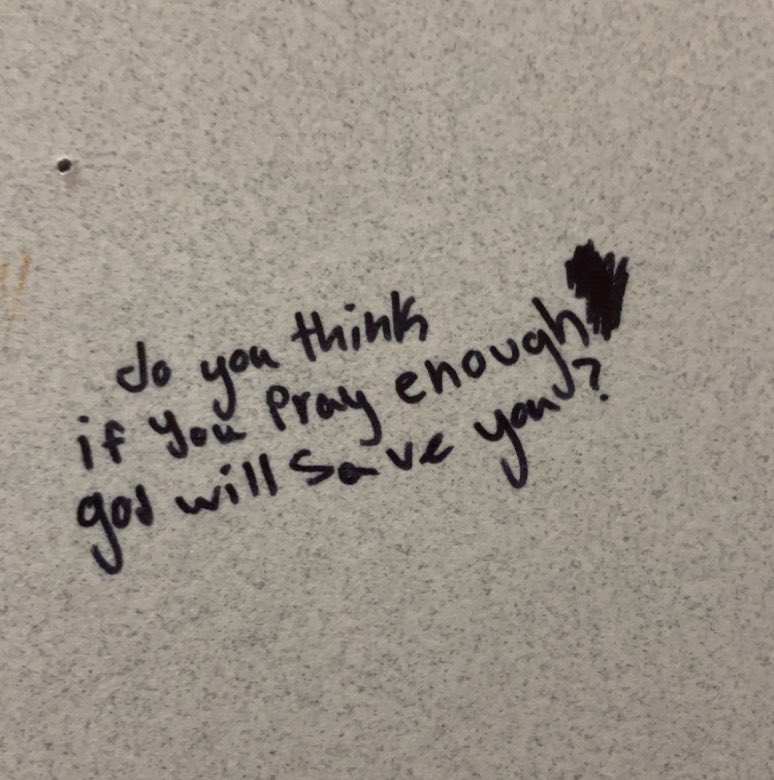 do you think
if you pray enough
god will save you?